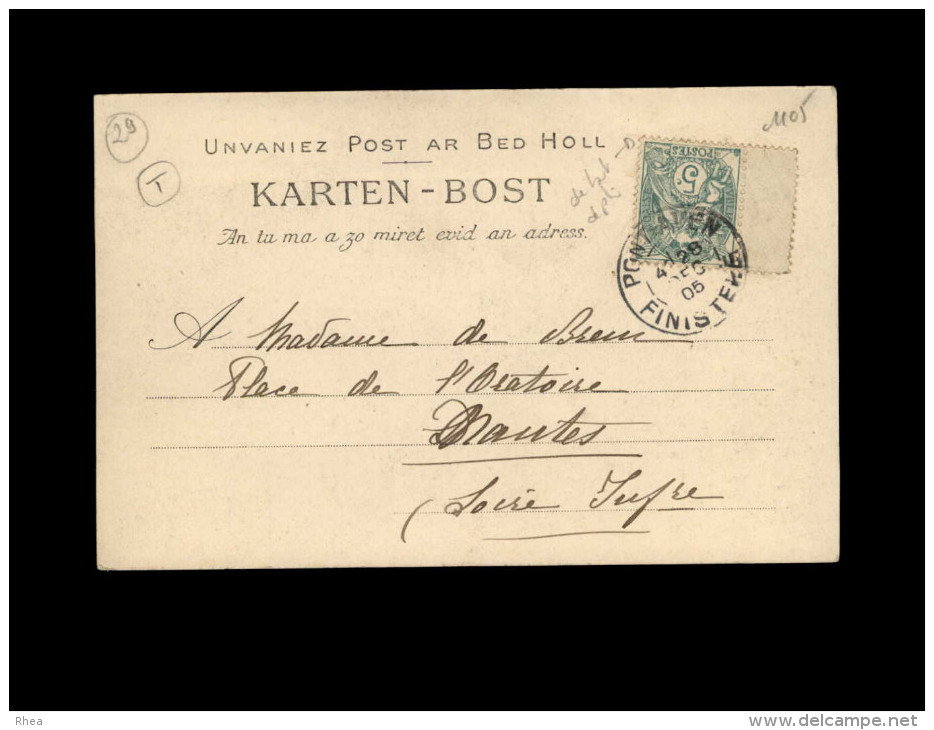 29
T
1105
UNVANIEZ POST AR BED HOLL
KARTEN-BOST
An tu ma a zo miret evid an adress.
POSTES
5c
PONT-AVEN
28
DEC
05
FINISTERE
A Madame de
Place de l'Oratoire
Nantes
(Loire Infre
Rhea
www.delcampe.net